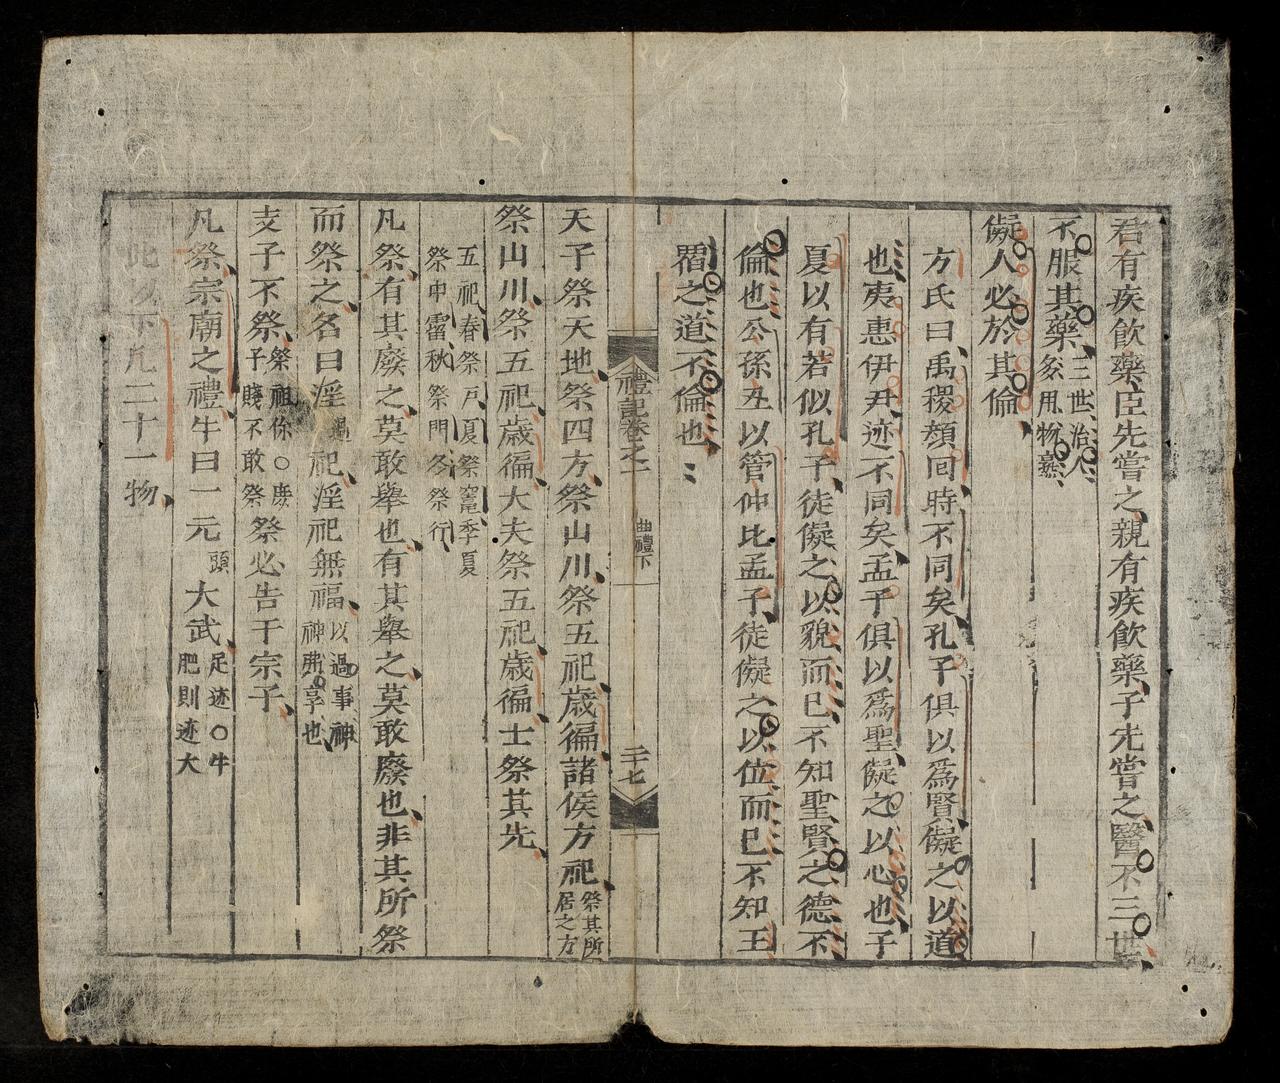 君有疾飲藥臣先嘗之親有疾飲藥子先嘗之醫不三世
不服其藥三世治人多用物熟
儗人必於其倫
方氏曰禹稷顔回時不同矣孔子俱以爲賢儗之以道
也夷惠伊尹迹不同矣孟子俱以爲聖儗之以心也子
夏以有若似孔子徒儗之以貌而已不知聖賢之德不
倫也公孫丑以管仲比孟子徒儗之以位而已不知王
覇之道不倫也
禮記卷之一
曲禮下
二十七
天子祭天地祭四方祭山川祭五祀歳徧諸侯方祀祭其所居之方
祭山川祭五祀歳徧大夫祭五祀歳徧士祭其先
五祀春祭戸夏祭竈季夏
祭中霤秋祭門冬祭行
凡祭有其廢之莫敢舉也有其舉之莫敢廢也非其所祭
而祭之名曰淫過祀淫祀無福以過事神神弗享也
支子不祭祭祖祢○庶子賤不敢祭祭必告于宗子
凡祭宗廟之禮牛曰一元頭大武足迹○牛肥則迹大
此以下凡二十一物